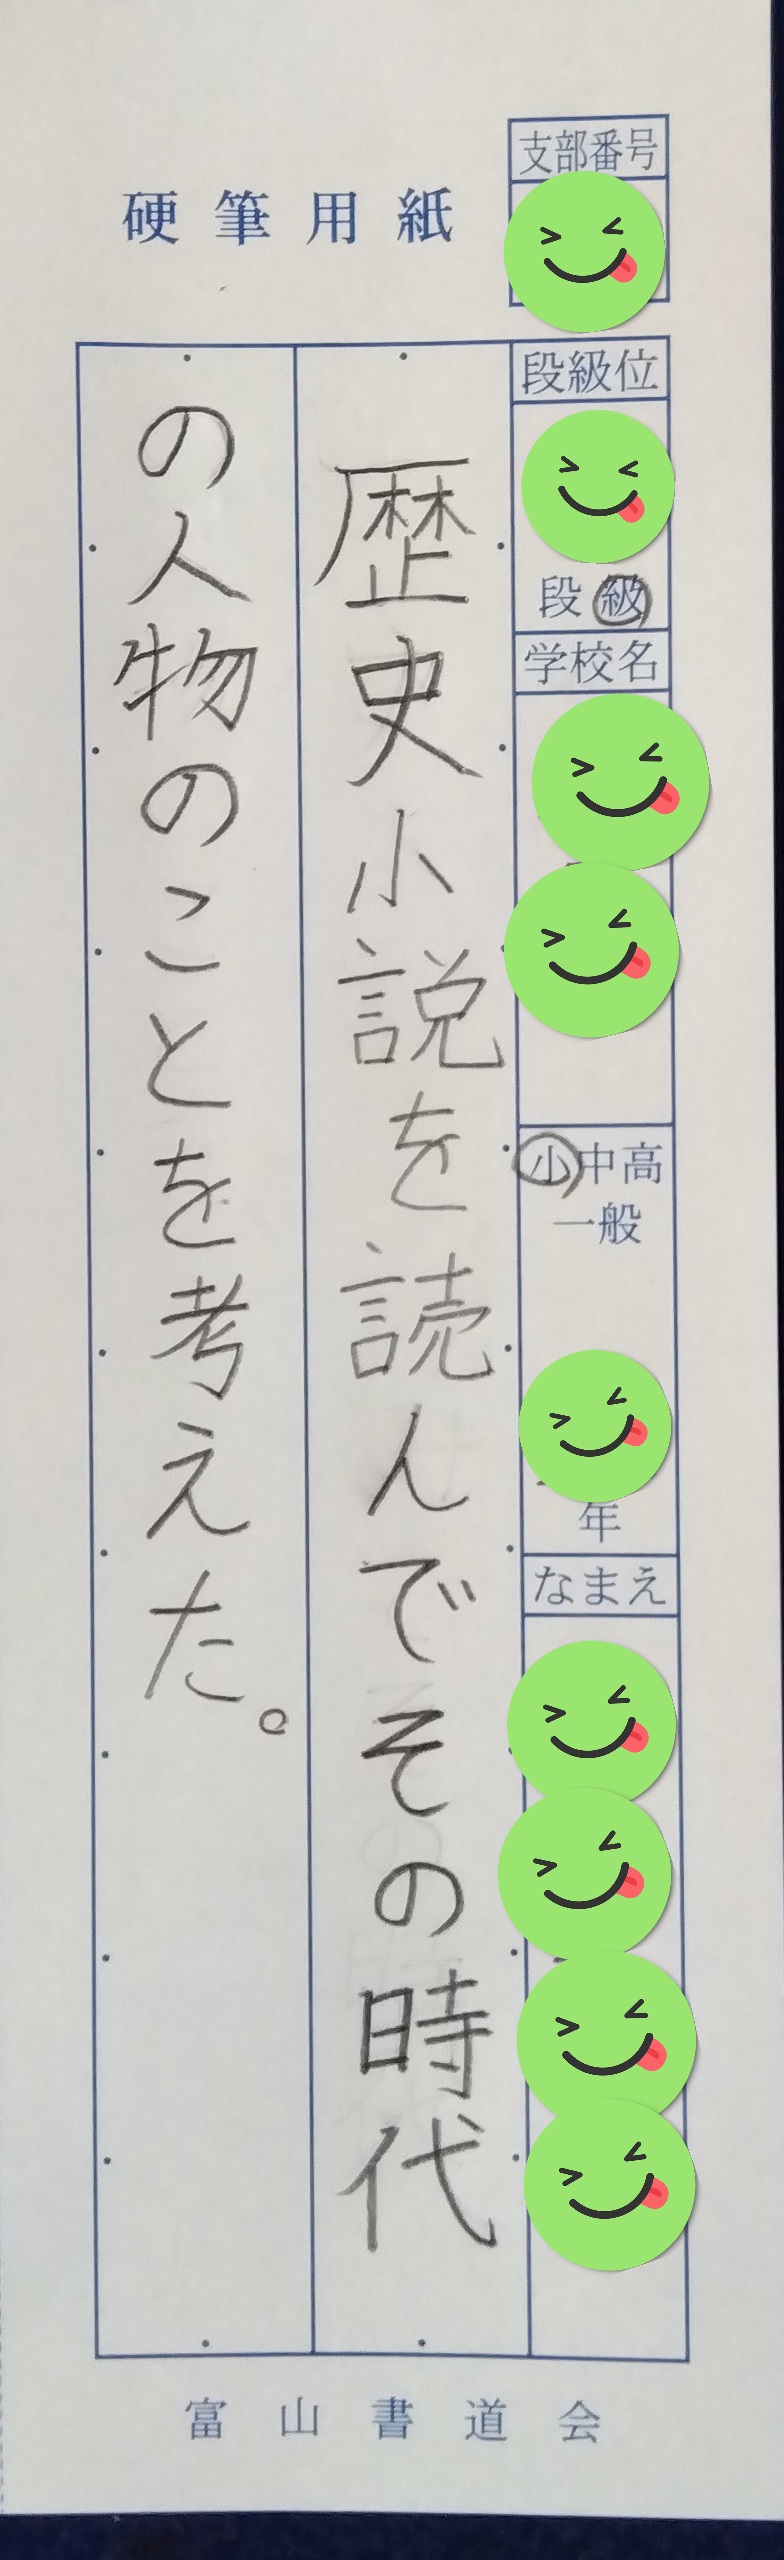 硬筆用紙
支部番号
段級位
段級
学校名
小中高
一般
年
なまえ
歴史小説を読んでその時代
の人物のことを考えた。
富山書道会